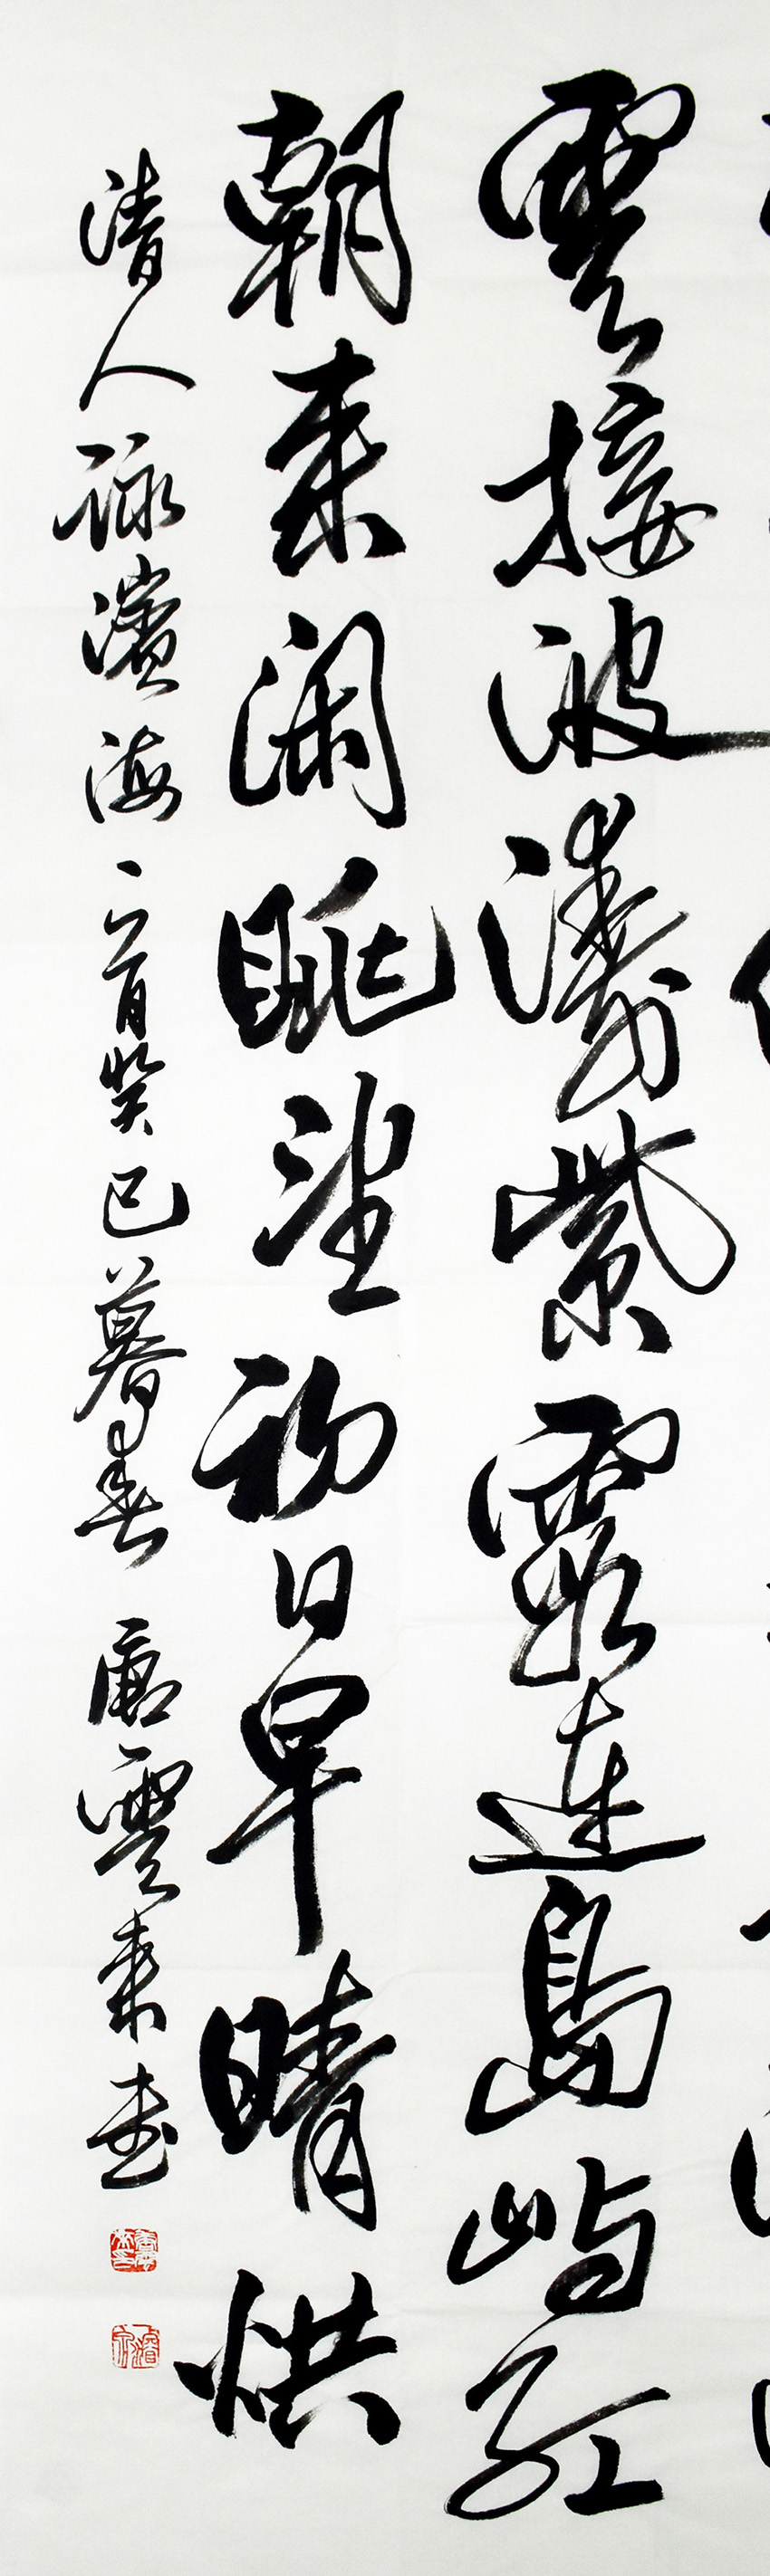 雲接波濤紫霧連島嶼紅
朝來閑眺望初日早晴烘
清人詠濱海一首癸巳暮春 唐雲來書